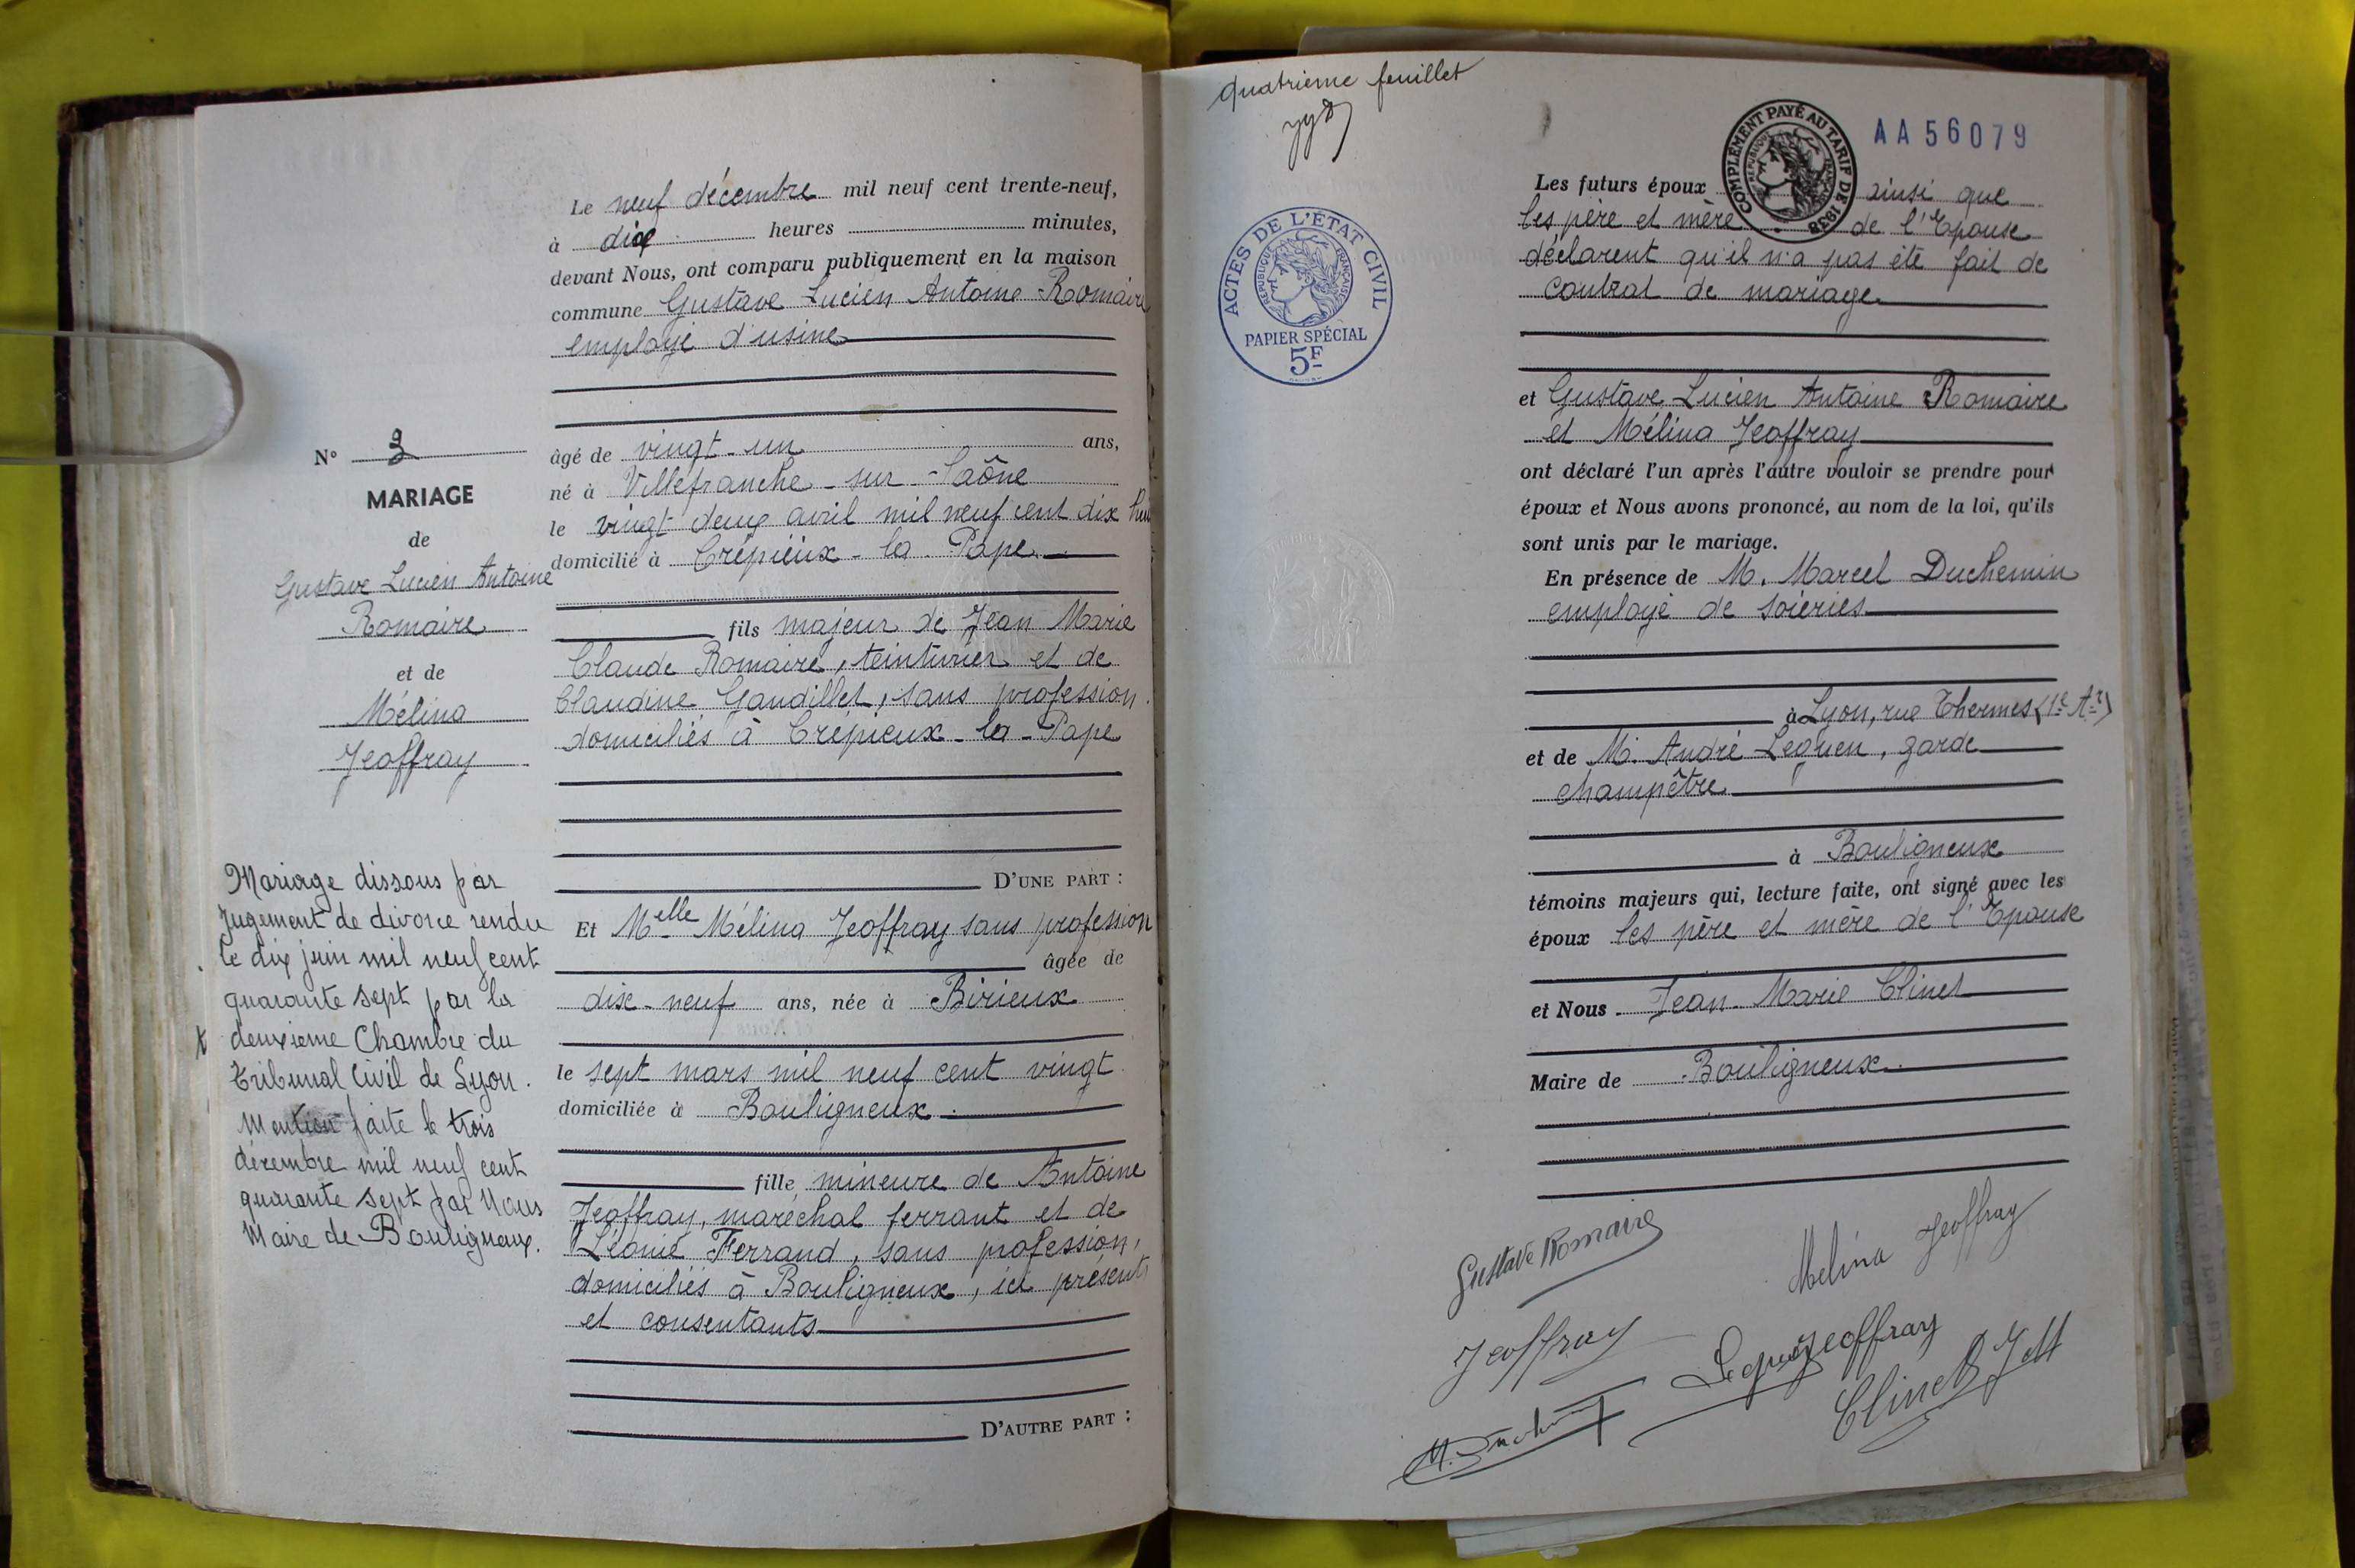 Le neuf décembre mil neuf cent trente-neuf,
à dix heures minutes,
devant Nous, ont comparu publiquement en la maison
commune Gustave Lucien Antoine Romaire
employé d'usine
N° 3
MARIAGE
de
Gustave Lucien Antoine
Romaire
et de
Mélina
Jeoffray
Mariage dissous par
Jugement de divorce rendu
le dix juin mil neuf cent
quarante sept par la
deuxième Chambre du
Tribunal Civil de Lyon.
Mention faite le trois
décembre mil neuf cent
quarante sept par Nous
Maire de Bouligneux.
âgé de vingt-un ans,
né à Villefranche-sur-Saône
le vingt-deux avril mil neuf cent dix huit
domicilié à Crépieux-la-Pape
fils majeur de Jean Marie
Claude Romaire, teinturier et de
Claudine Gaudillet, sans profession
domiciliés à Crépieux-la-Pape
D'UNE PART :
Et Melle Mélina Jeoffray sans profession
âgée de
dix-neuf ans, née à Birieux
le sept mars mil neuf cent vingt
domiciliée à Bouligneux
fille mineure de Antoine
Jeoffray, maréchal ferrant et de
Léonie Ferrand, sans profession,
domiciliés à Bouligneux, ici présents
et consentants
D'AUTRE PART :
quatrième feuillet
ACTES DE L'ÉTAT CIVIL
RÉPUBLIQUE FRANÇAISE
PAPIER SPÉCIAL
5F
COMPLÉMENT PAYÉ AU TARIF DE 1938
RÉPUBLIQUE FRANÇAISE
AA56079
Les futurs époux ainsi que
les père et mère de l'Epouse
déclarent qu'il n'a pas été fait de
contrat de mariage
et Gustave Lucien Antoine Romaire
et Mélina Jeoffray
ont déclaré l'un après l'autre vouloir se prendre pour
époux et Nous avons prononcé, au nom de la loi, qu'ils
sont unis par le mariage.
En présence de M. Marcel Duchemin
employé de soieries
à Lyon, rue Thermes (1e Ar)
et de M. André Leguen, garde
champêtre
à Bouligneux
témoins majeurs qui, lecture faite, ont signé avec les
époux les père et mère de l'Epouse
et Nous Jean-Marie Clinet
Maire de Bouligneux
Gustave Romaire
Melina Jeoffray
Jeoffray
Leguen
Jeoffray
Clinet JM